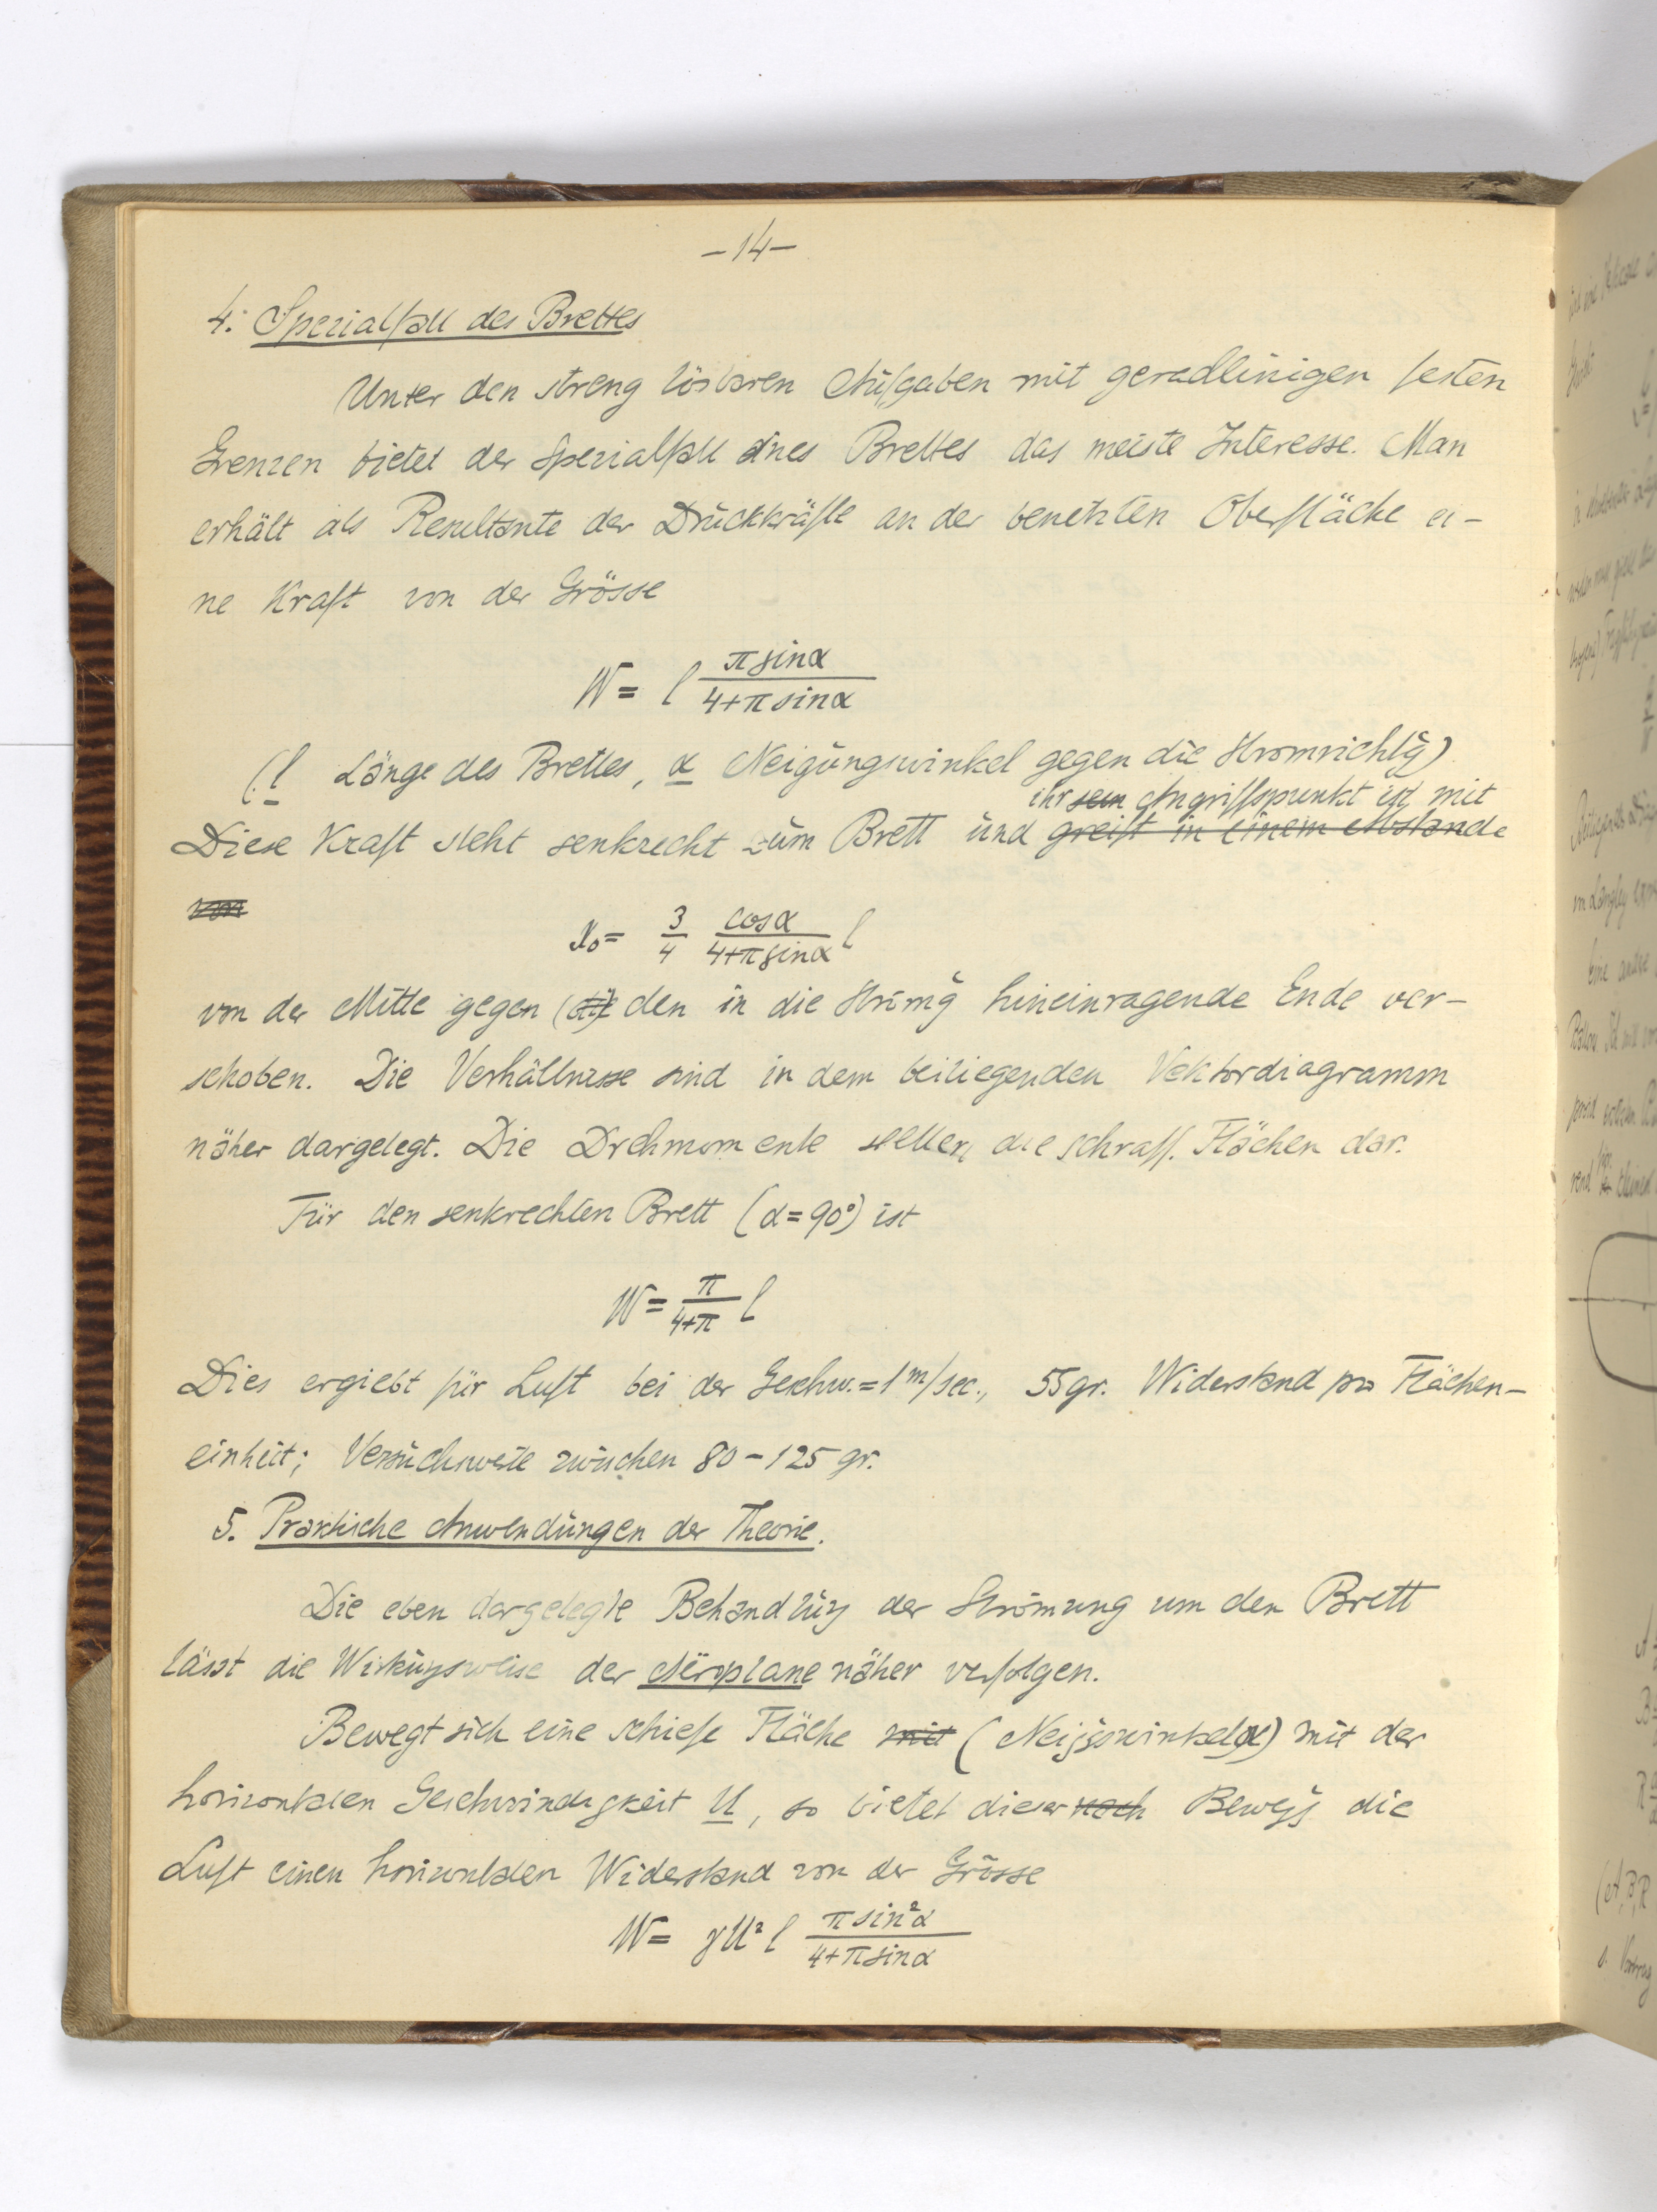 –14–
4. Spezialfall des Brettes
Unter den streng lösbaren Aufgaben mit geradlinigen festen
Grenzen bietet der Spezialfall eines Brettes das meiste Interesse. Man
erhält als Resultante der Druckkräfte an der benetzten Oberfläche ei-
ne Kraft von der Grösse
W = l π sinα / (4+π sinα)
(l Länge des Brettes, α Neigungswinkel gegen die Stromrichtg)
ihr sein Angriffspunkt ist mit
Diese Kraft steht senkrecht zum Brett und greift in einem Abstande
von
x₀ = 3/4 cosα / (4+π sinα) l
von der Mitte gegen (die) den in die Strömg hineinragende Ende ver-
schoben. Die Verhältnisse sind in dem beiliegenden Vektordiagramm
näher dargelegt. Die Drehmomente stellen die schraff. Flächen dar.
Für den senkrechten Brett (α=90°) ist
W = π / (4+π) l
Dies ergiebt für Luft bei der Geschw.=1 m/sec., 55 gr. Widerstand pro Flächen-
einheit; Versuchswerte zwischen 80–125 gr.
5. Praktische Anwendungen der Theorie.
Die eben dargelegte Behandlung der Strömung um den Brett
lässt die Wirkungsweise der Aëroplane näher verfolgen.
Bewegt sich eine schiefe Fläche mit (Neiggswinkel α) mit der
horizontalen Geschwindigkeit U, so bietet dieser noch Bewegg die
Luft einen horizontalen Widerstand von der Grösse
W = γU² l π sin²α / (4+π sinα)